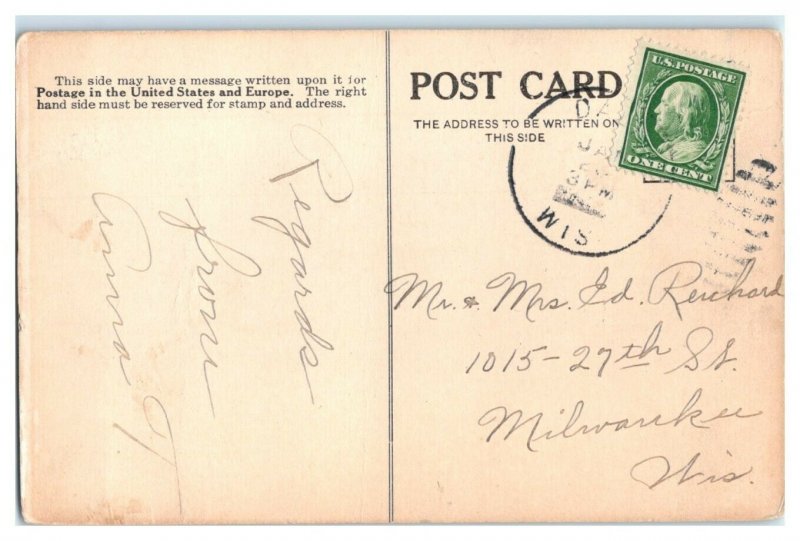 This side may have a message written upon it for
Postage in the United States and Europe. The right
hand side must be reserved for stamp and address.
Regards
from
Anna
POST CARD
THE ADDRESS TO BE WRITTEN ON
THIS SIDE
U.S. POSTAGE
ONE CENT
DA
JA
3 PM
WIS
Mr. & Mrs. Ed. Reichard
1015-27th St.
Milwaukee
Wis.